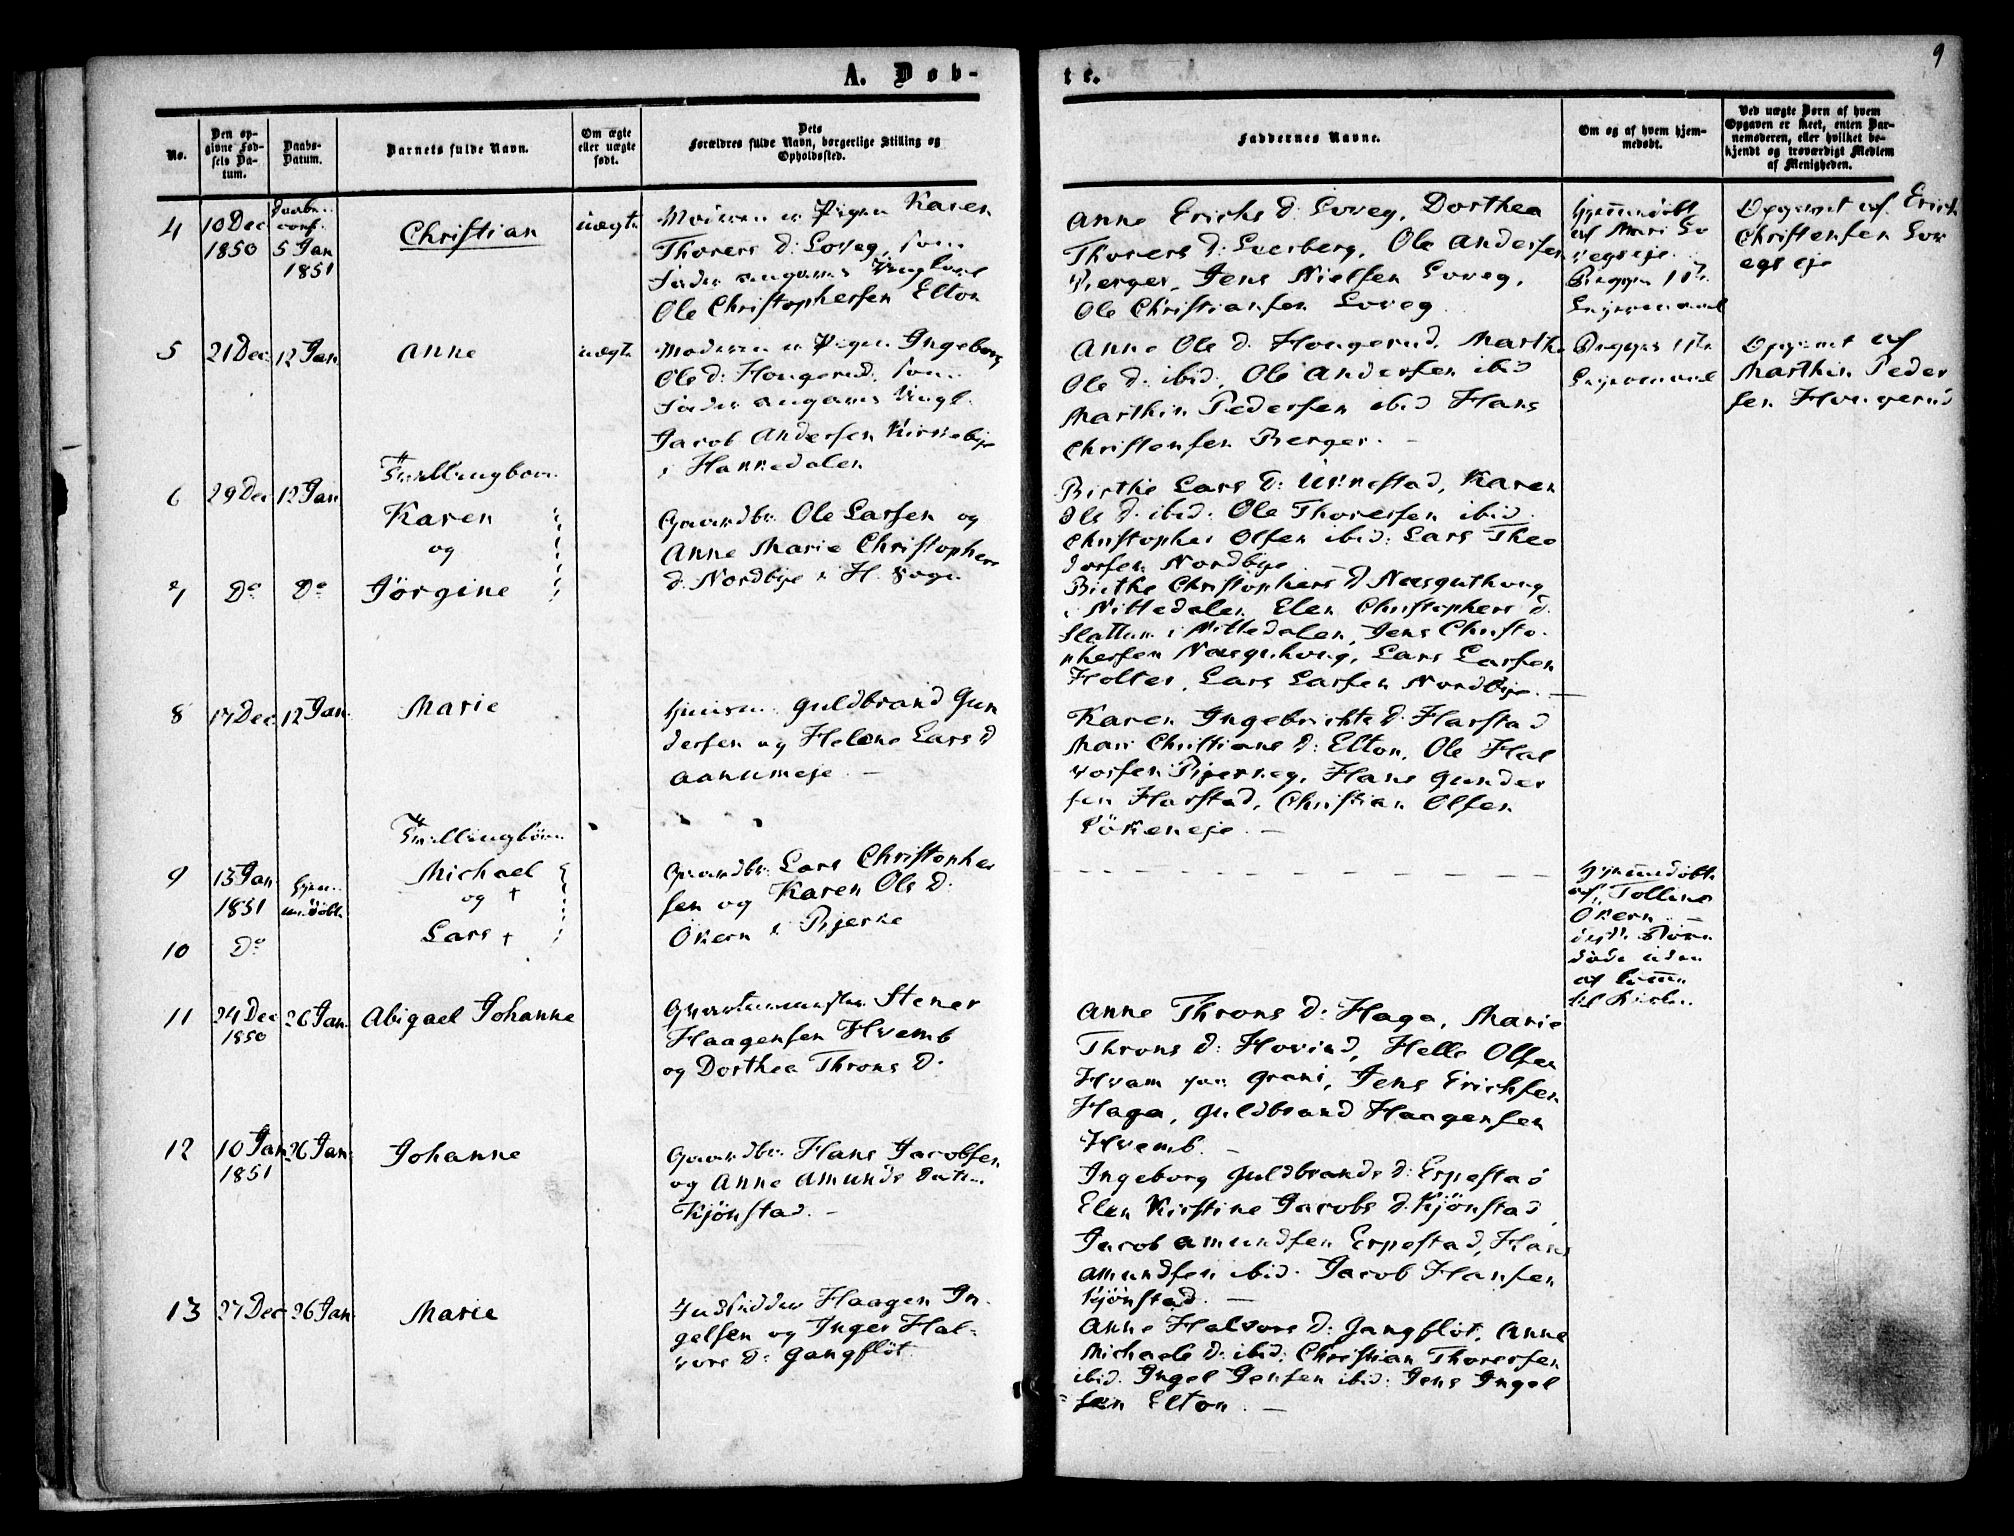 A. Døb-
te.
9
No.
Den op-
givne Fød-
sels Da-
tum.
Daabs-
Datum.
Barnets fulde Navn.
Om ægte
eller uægte
født.
Dets
Forældres fulde Navn, borgerlige Stilling og
Opholdssted.
Faddernes Navne.
Om og af hvem hjem-
medøbt.
Ved uægte Børn af hvem
Opgaven er skeet, enten Bar-
nemoderen, eller hvilket be-
kjendt og troværdigt Medlem
af Menigheden.
4
10 Dec
1850
Daabs
conf.
5 Jan
1851
Christian
uægte
Moderen er Pigen Karen
Thorers d: Loveg, som
Fader angaves Ungkarl
Ole Christophersen Elton
Anne Erichs d: Loveg, Dorthea
Thorers d: Leerberg, Ole Andersen
Berger, Jens Nielsen Loveg,
Ole Christiansen Loveg
Hjemmedøbt
af Mari Lo
vegseje
Begges 1ste
Leiermaal
Opgivet af Erich
Christensen Lov
egseje
5
21 Dec
12 Jan
Anne
uægte
Moderen er Pigen Ingeborg
Ols d: Hougerud, som
Fader angaves Ungk.
Jacob Andersen Kirkebye
i Hannedalen
Anne Ole d. Hougerud, Marthe
Ole d: ibid, Ole Andersen ibid
Marthin Pedersen ibid Hans
Christensen Berger. -
Begges 1ste
Leiermaal
Opgivet af
Marthin Peder
sen Hougerud
6
29 Dec
12 Jan
Tvillingbørn
Karen
og
Gaardbr. Ole Larsen og
Anne Marie Christophers
d: Nordbye i H. Sogn
Birthe Lars d: Urnestad, Karen
Ols d. ibid: Ole Thoresen ibid.
Christopher Olsen ibid: Lars Theo
dorsen Nordbye
7
Do
Do
Jörgine
Birthe Christophers d Næsguthoug
i Nittedalen, Elen Christophers d:
Slattum i Nittedalen, Jens Christo-
phersen Næsguthoug, Lars Larsen
Holter, Lars Larsen Nordbye. -
8
17 Dec
12 Jan
Marie
Huusm. Guldbrand Gun
dersen og Helene Lars d
Aanumeje. -
Karen Ingebrichts d: Harstad
Mari Christians d: Elton, Ole Hal
vorsen Bjerkeg, Hans Gunder
sen Harstad, Christian Olsen
Lökeneje. -
9
13 Jan
1851
Hjem-
medøbt
Tvillingbörn
Michael
og +
Gaardbr: Lars Christopher
sen og Karen Ols d:
Okern i Bjerke
Hjemmedøbt
af Tolline
Okern -
disse Børn
døde uden
at komme
til Kirken
10
Do
Lars +
11
24 Dec
1850
26 Jan
Abigael Johanne
Qvarteermester Stener
Haagensen Hvamb
og Dorthea Throns d:
Anne Throns d: Haga, Marie
Throns d: Hovind, Helle Olsen
Hvam paa Grani, Jens Erichsen
Haga, Guldbrand Haagensen
Hvamb. -
12
10 Jan
1851
26 Jan
Johanne
Gaardbr. Hans Jacobsen
og Anne Amunds Dat.
Kjönstad. -
Ingeborg Guldbrands d: Erpestad
Elen Kirstine Jacobs d: Kjönstad,
Jacob Amundsen Erpestad, Hans
Amundsen ibid. Jacob Hansen
Kjönstad. -
13
27 Dec
26 Jan
Marie
Indsidder Haagen In-
gelsen og Inger Hal-
vors d: Gangflöt.
Anne Halvors d: Gangflöt, Anne
Michaels d: ibid: Christian Thoresen
ibid. Ingel Jensen ibid: Jens Ingel
sen Elton. -